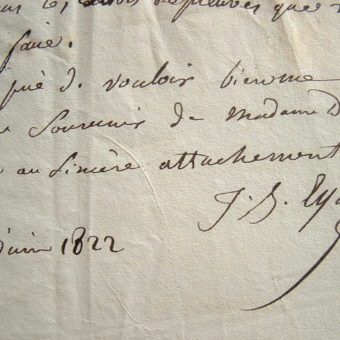 que
faire.
prié de vouloir bien me
souvenir de Madame D
au sincère attachement
J. G. Ey
juin 1822